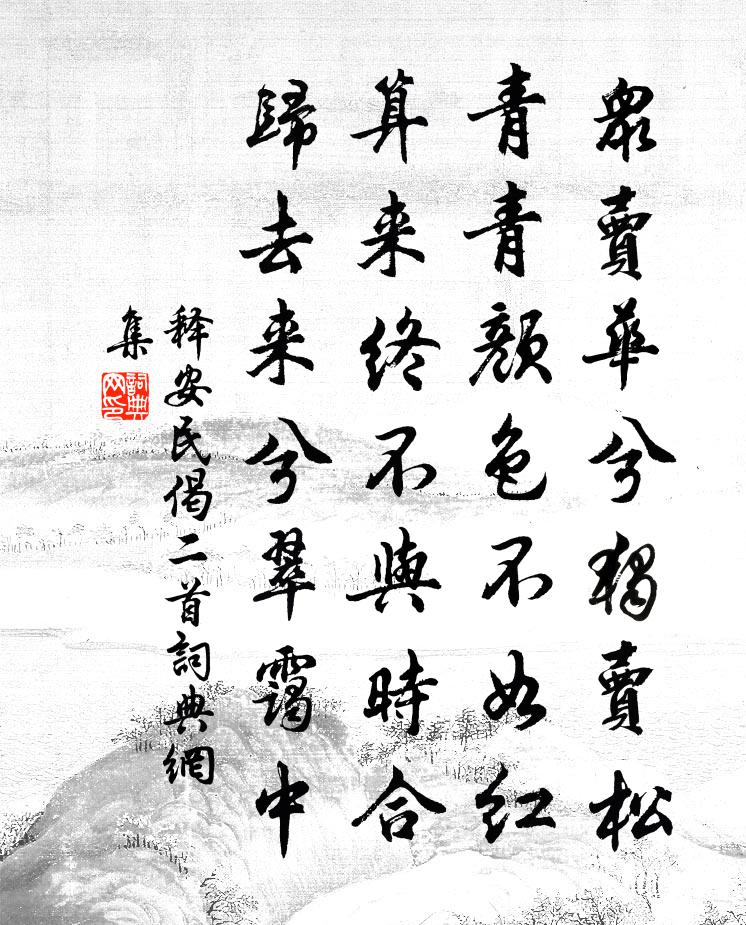 衆賣華兮獨賣松
青青顔色不如紅
算来終不與時合
歸去来兮翠靄中
释安民偈二首詞典網
集
詞典網印